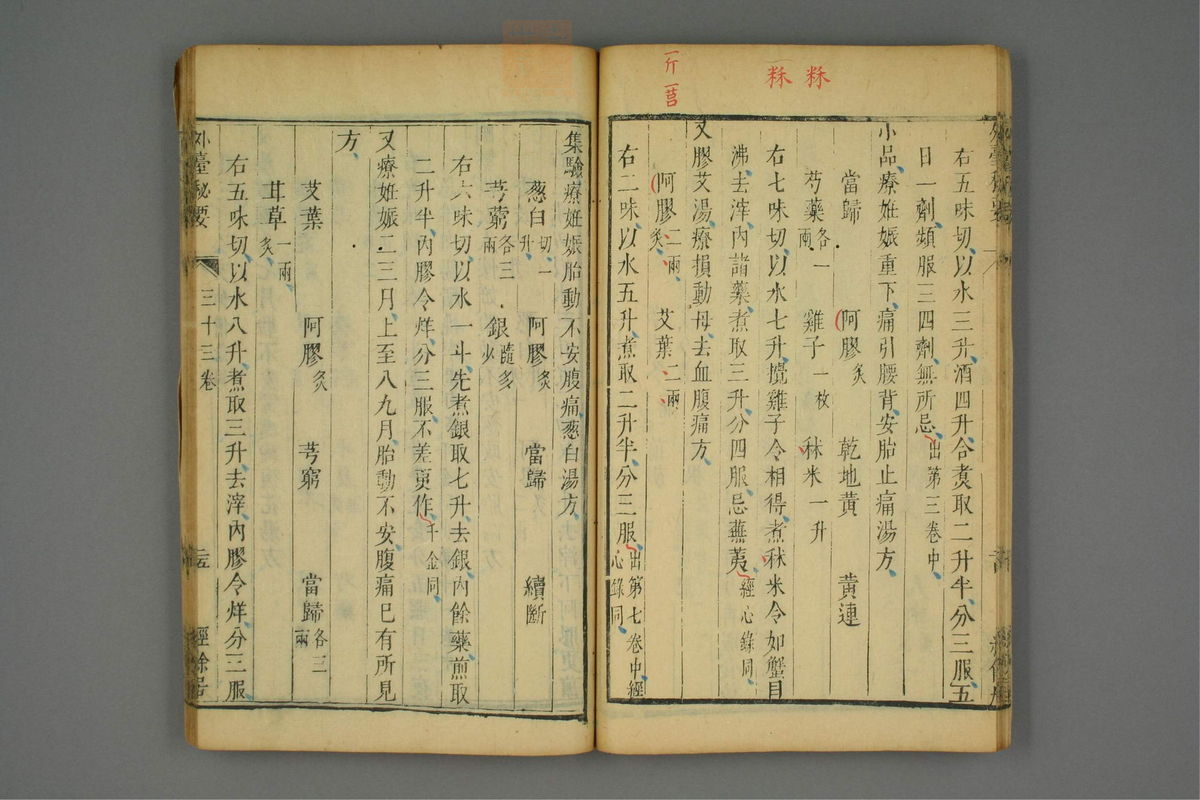 秫 秫
一斤 一莒
右五味切以水三升酒四升合煑取二升半分三服五
日一劑頻服三四劑無所忌出第三卷中
小品療妊娠重下痛引腰背安胎止痛湯方
當歸 阿膠炙 乾地黄 黄連
芍藥各一兩 雞子一枚 秫米一升
右七味切以水七升攪雞子令相得煮秫米令如蟹目
沸去滓內諸藥煮取三升分四服忌蕪荑經心錄同
又膠艾湯療損動母去血腹痛方
阿膠二兩炙 艾葉二兩
右二味以水五升煮取二升半分三服出第七卷中經心錄同
集驗療妊娠胎動不安腹痛葱白湯方
葱白切一升 阿膠炙 當歸 續斷
芎藭各三兩 銀隨多少
右六味切以水一斗先煮銀取七升去銀內餘藥煎取
二升半內膠令烊分三服不差更作千金同
又療妊娠二三月上至八九月胎動不安腹痛已有所見
方
艾葉 阿膠炙 芎窮 當歸各三兩
甘草一兩炙
右五味切以水八升煮取三升去滓內膠令烊分三服
外臺秘要 三十三卷 經餘居